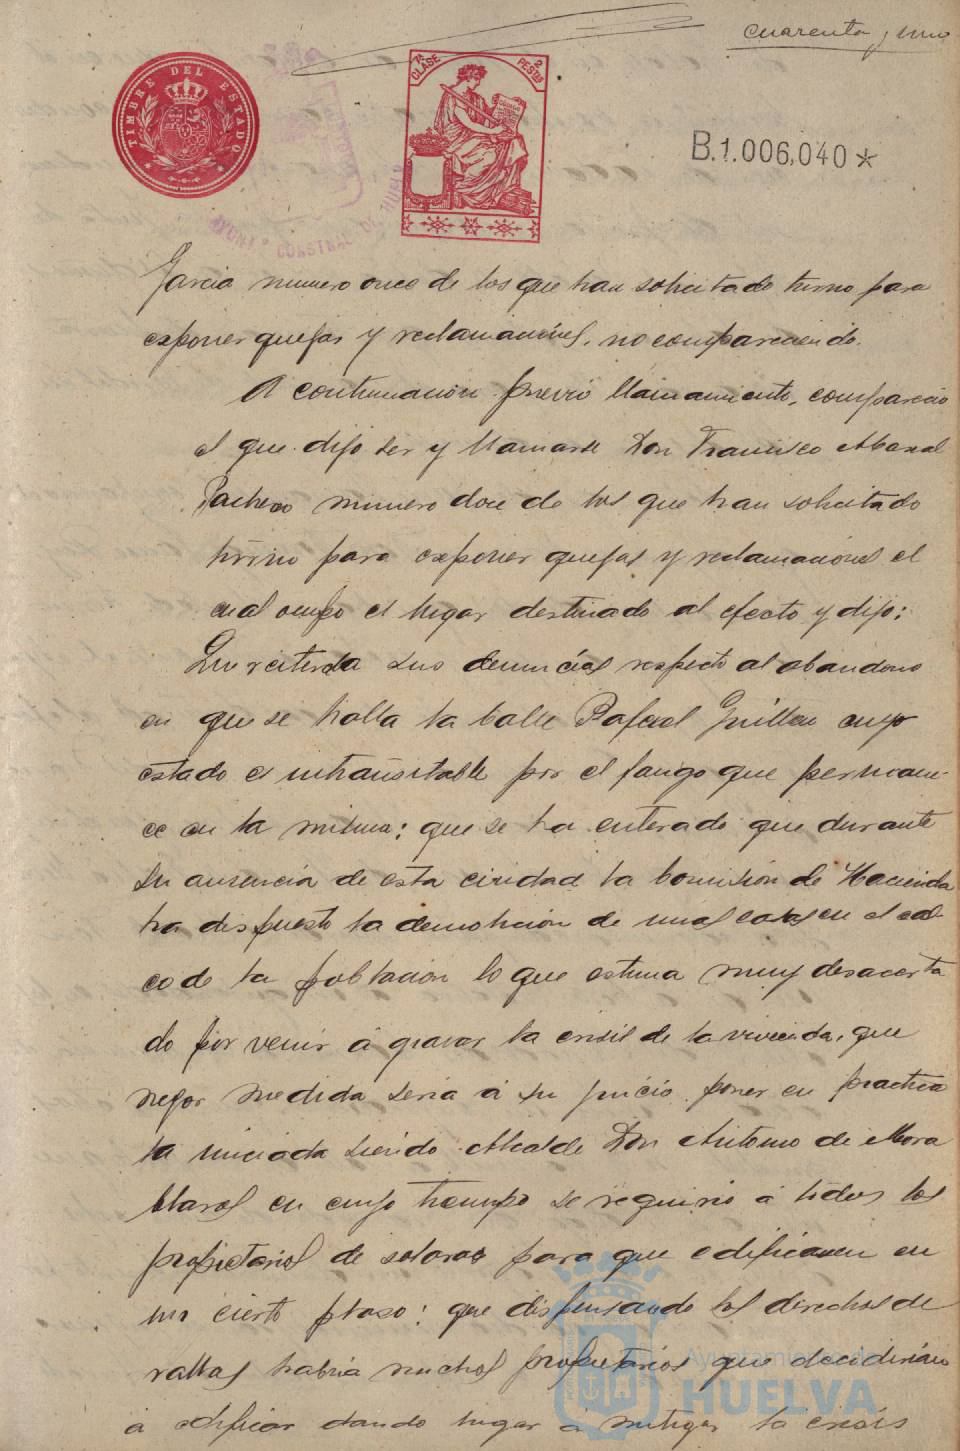 cuarenta y uno
TIMBRE DEL ESTADO
7ª CLASE
2 PESTAS
B.1.006,040*
AYUNTº CONSTNAL DE HUELVA
Garcia numero once de los que han solicitado turno para
exponer quejas y reclamaciones, no compareciendo.
A continuacion previo llamamiento, comparecio
el que dijo ser y llamarse Don Francisco Abanal
Pacheco numero doce de los que han solicitado
turno para exponer quejas y reclamaciones el
cual ocupo el lugar destinado al efecto y dijo:
Que reiteraba sus denuncias respecto al abandono
en que se halla la Calle Rafael Guillen cuyo
estado es intransitable por el fango que permane-
ce en la misma: que se ha enterado que durante
su ausencia de esta ciudad la Comision de Hacienda
ha dispuesto la demolicion de unas casas en el cas-
co de la poblacion lo que estima muy desacerta
do por venir á gravar la crisis de la vivienda, que
mejor medida seria á su juicio poner en practica
la iniciada siendo Alcalde Don Antonio de Mora
Claros en cuyo tiempo se requirio á todos los
propietarios de solares para que edificasen en
un cierto plazo: que dispensando los derechos de
vallas habria muchos propietarios que decidirian
á edificar dando lugar á mitigar la crisis
Ayuntamiento de
HUELVA